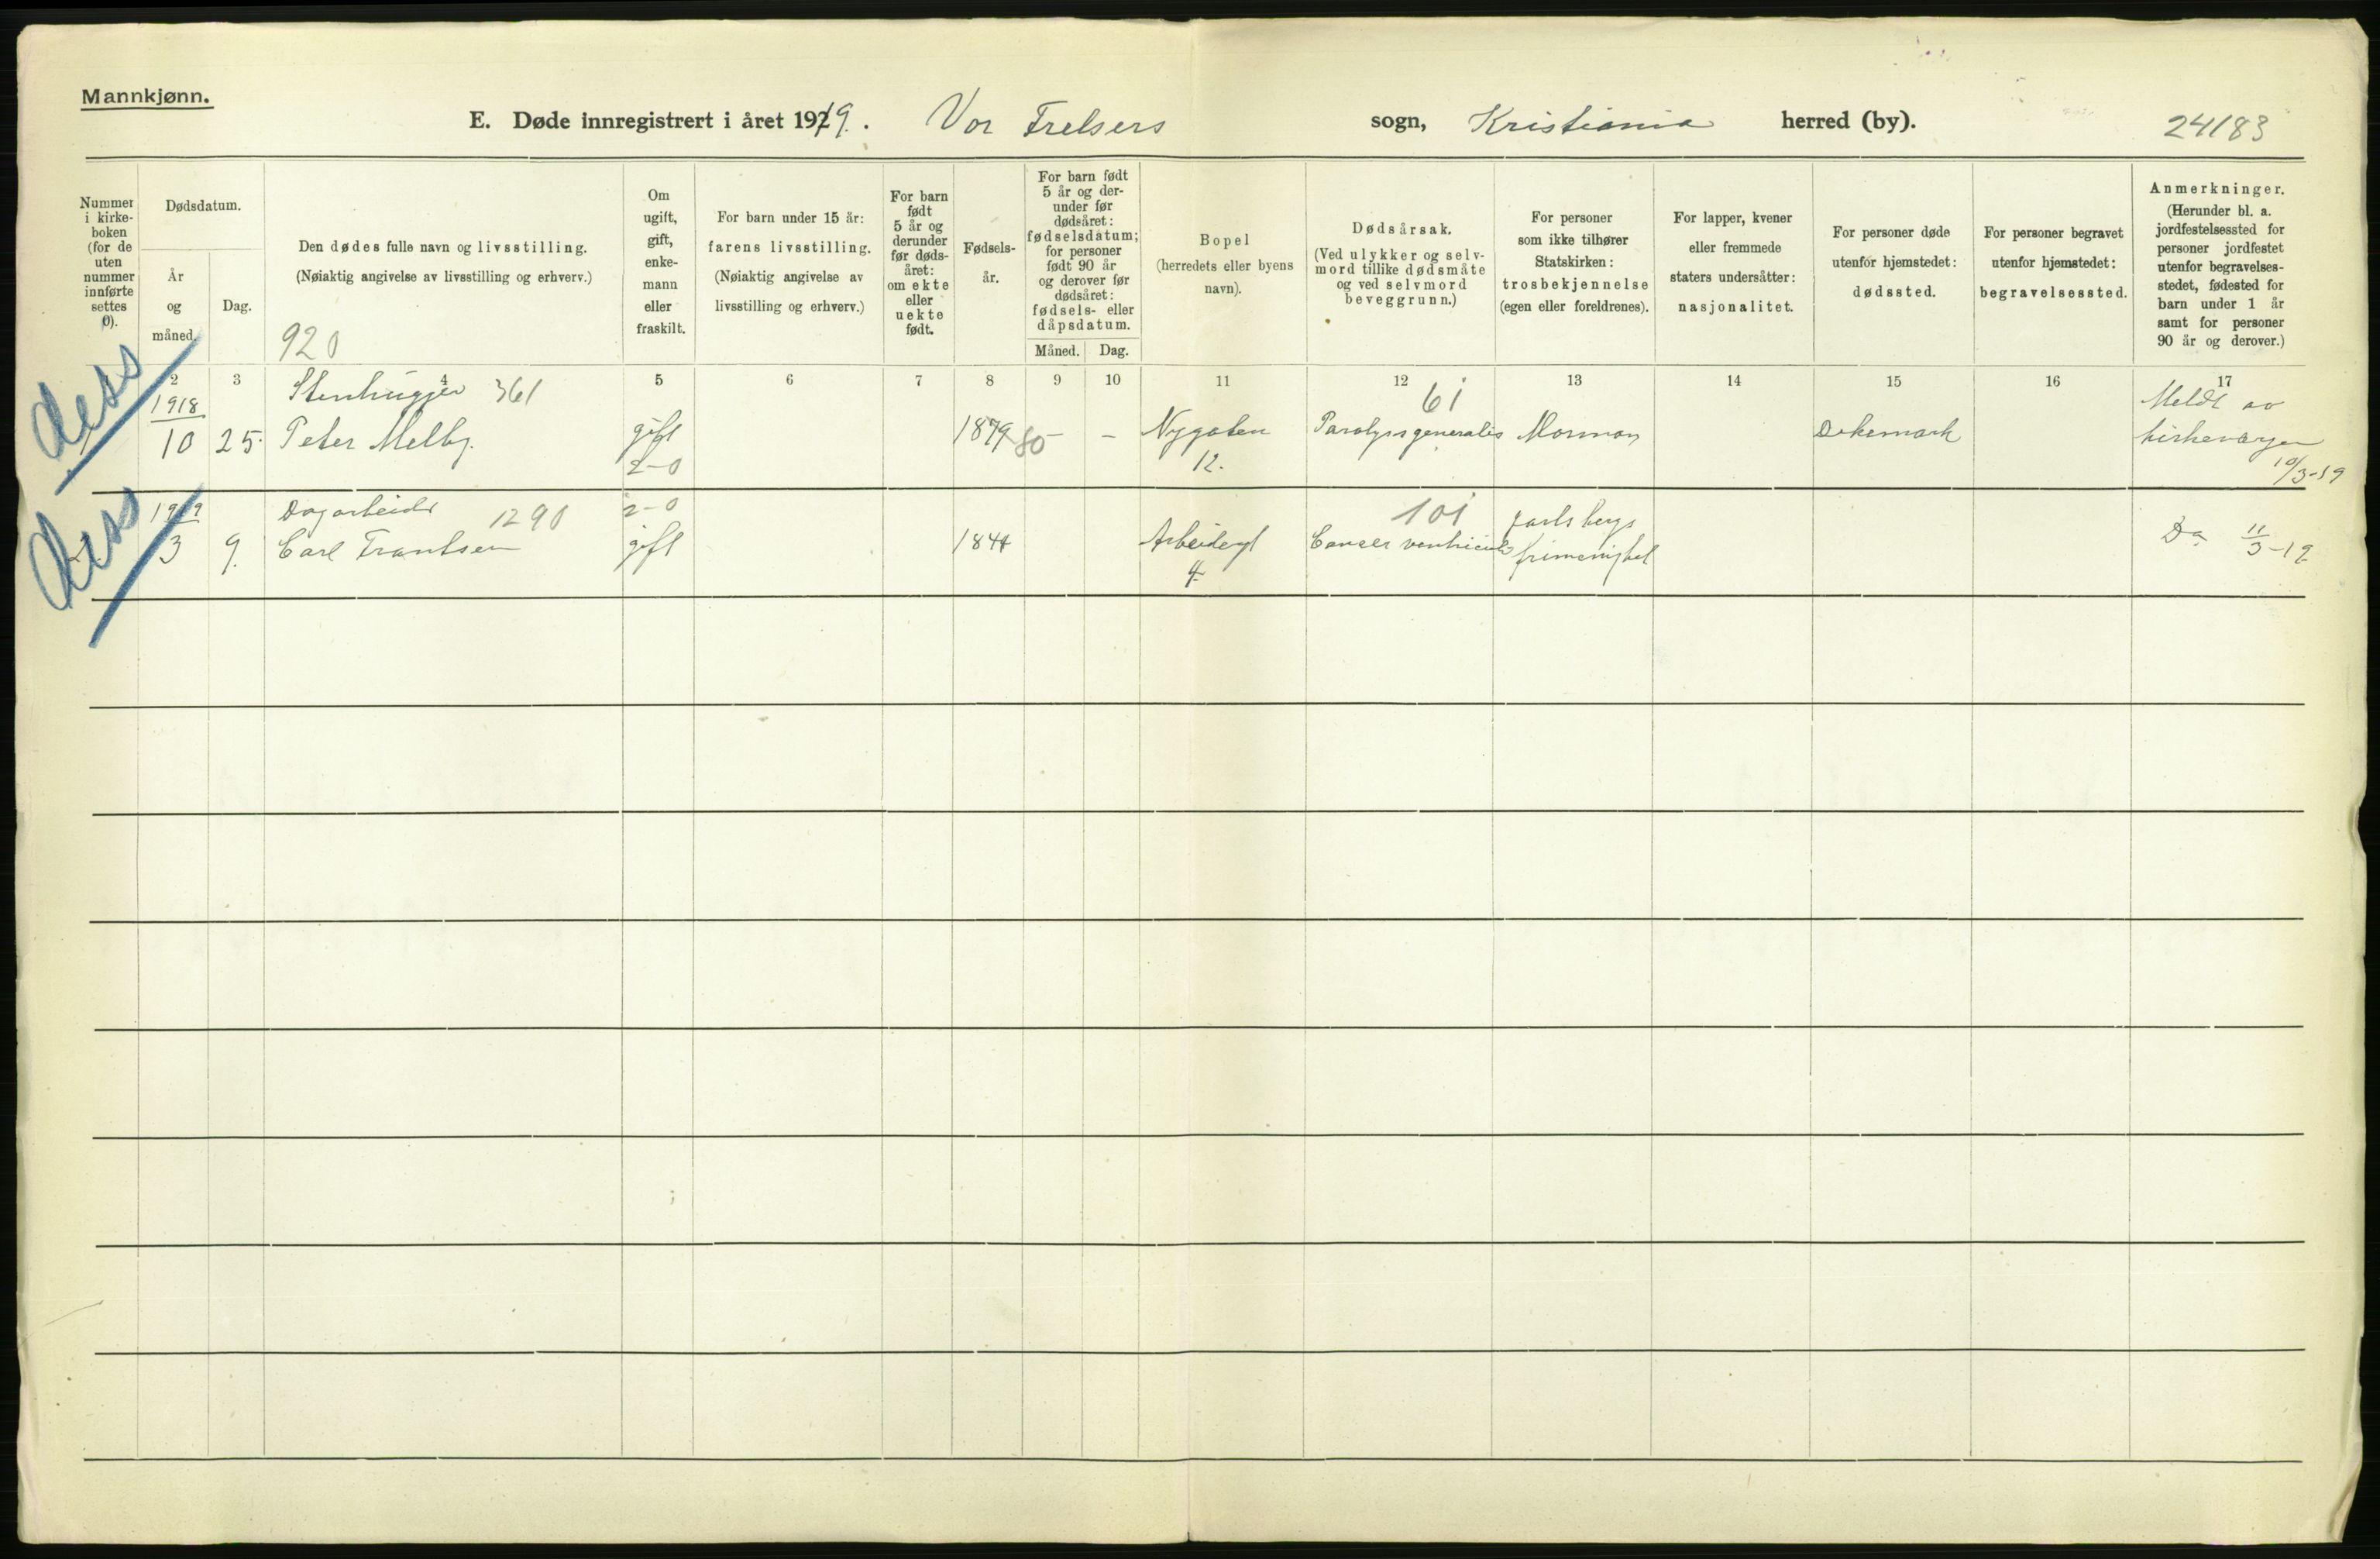 Mannkjønn.
E. Døde innregistrert i året 1919. Vor Frelsers sogn, Kristiania herred (by). 24183
Nummer i kirke-boken (for de uten nummer innførte settes 0).
Dødsdatum.
År og måned.
Dag.
Den dødes fulle navn og livsstilling.
(Nøiaktig angivelse av livsstilling og erhverv.)
920
Om ugift, gift, enke-mann eller fraskilt.
For barn under 15 år:
farens livsstilling.
(Nøiaktig angivelse av livsstilling og erhverv.)
For barn født 5 år og derunder før døds-året: om ekte eller uekte født.
Fødsels-år.
For barn født 5 år og der-under før dødsåret: fødselsdatum; for personer født 90 år og derover før dødsåret: fødsels- eller dåpsdatum.
Måned. Dag.
Bopel
(herredets eller byens navn).
Dødsårsak.
(Ved ulykker og selv-mord tillike dødsmåte og ved selvmord beveggrunn.)
For personer som ikke tilhører Statskirken: trosbekjennelse (egen eller foreldrenes).
For lapper, kvener eller fremmede staters undersåtter: nasjonalitet.
For personer døde utenfor hjemstedet: dødssted.
For personer begravet utenfor hjemstedet: begravelsessted.
Anmerkninger.
(Herunder bl. a. jordfestelsessted for personer jordfestet utenfor begravelses-stedet, fødested for barn under 1 år samt for personer 90 år og derover.)
2 3 4 5 6 7 8 9 10 11 12 13 14 15 16 17
dess
1918 Stenhugger 361 61 Meldt av
10 25. Peter Melby. gift 1879 80 - - Nygaten Paralysis generalis Mormon Dikemark kirkevergen
2-0 12. 10/3-19
dess
1919 Dagarbeider 1290 2-0 101 Jarlsbergs
2. 3 9. Carl Frantsen gift 1844 Arbeidergt Cancer ventriculi frimenighet Do 11/3-19
4